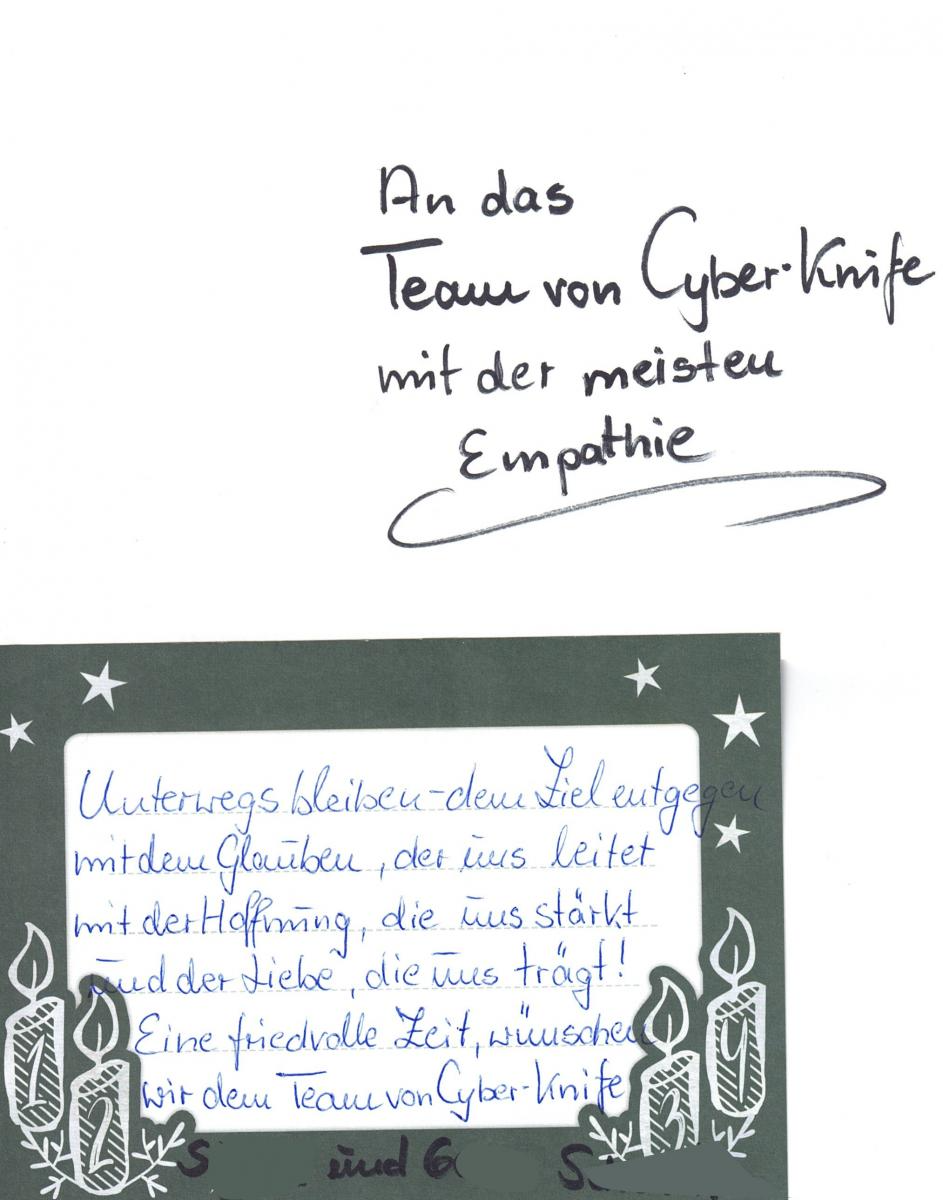 An das
Team von Cyber-Knife
mit der meisten
Empathie
Unterwegs bleiben - dem Ziel entgegen
mit dem Glauben, der uns leitet
mit der Hoffnung, die uns stärkt
und der Liebe, die uns trägt!
Eine friedvolle Zeit, wünschen
wir dem Team von Cyber-Knife
S und G S
1
2
3
4